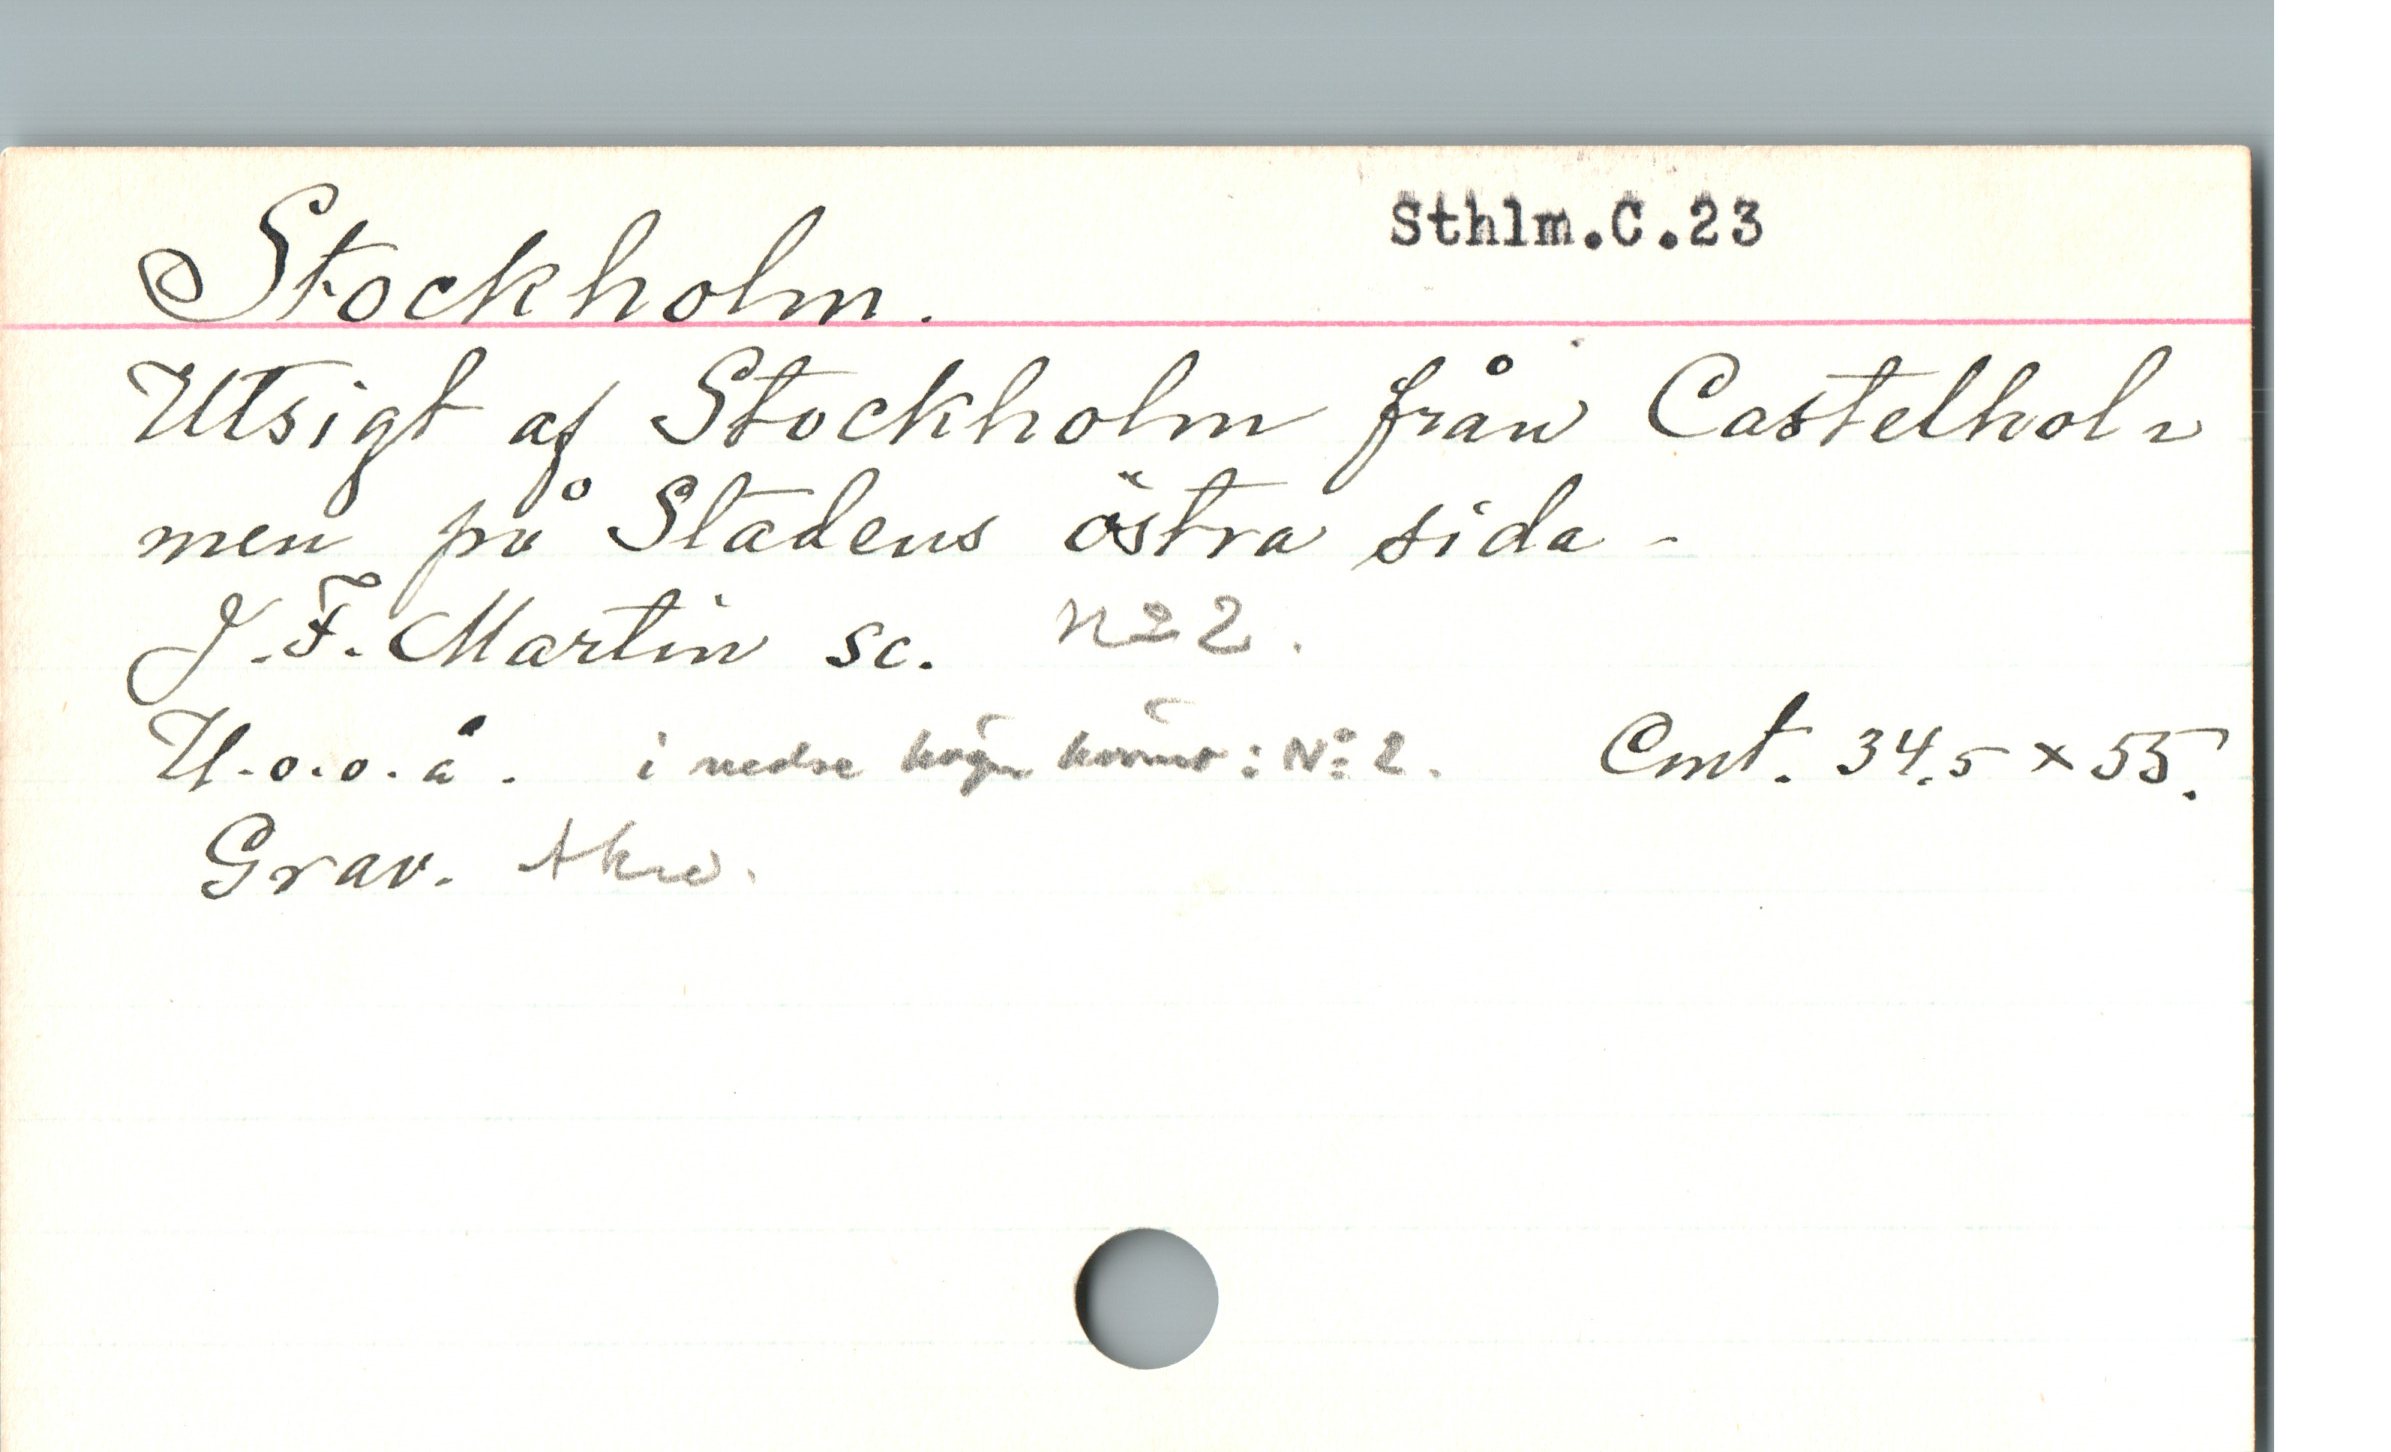 Stockholm. Sthlm.C.23
Utsigt af Stockholm från Castelhol-
men på Stadens östra sida -
J. F. Martin sc. No 2.
U.o.o.å. i nedre högra hörnet: No 2. Cmt. 34,5 x 55.
Grav. Akv.